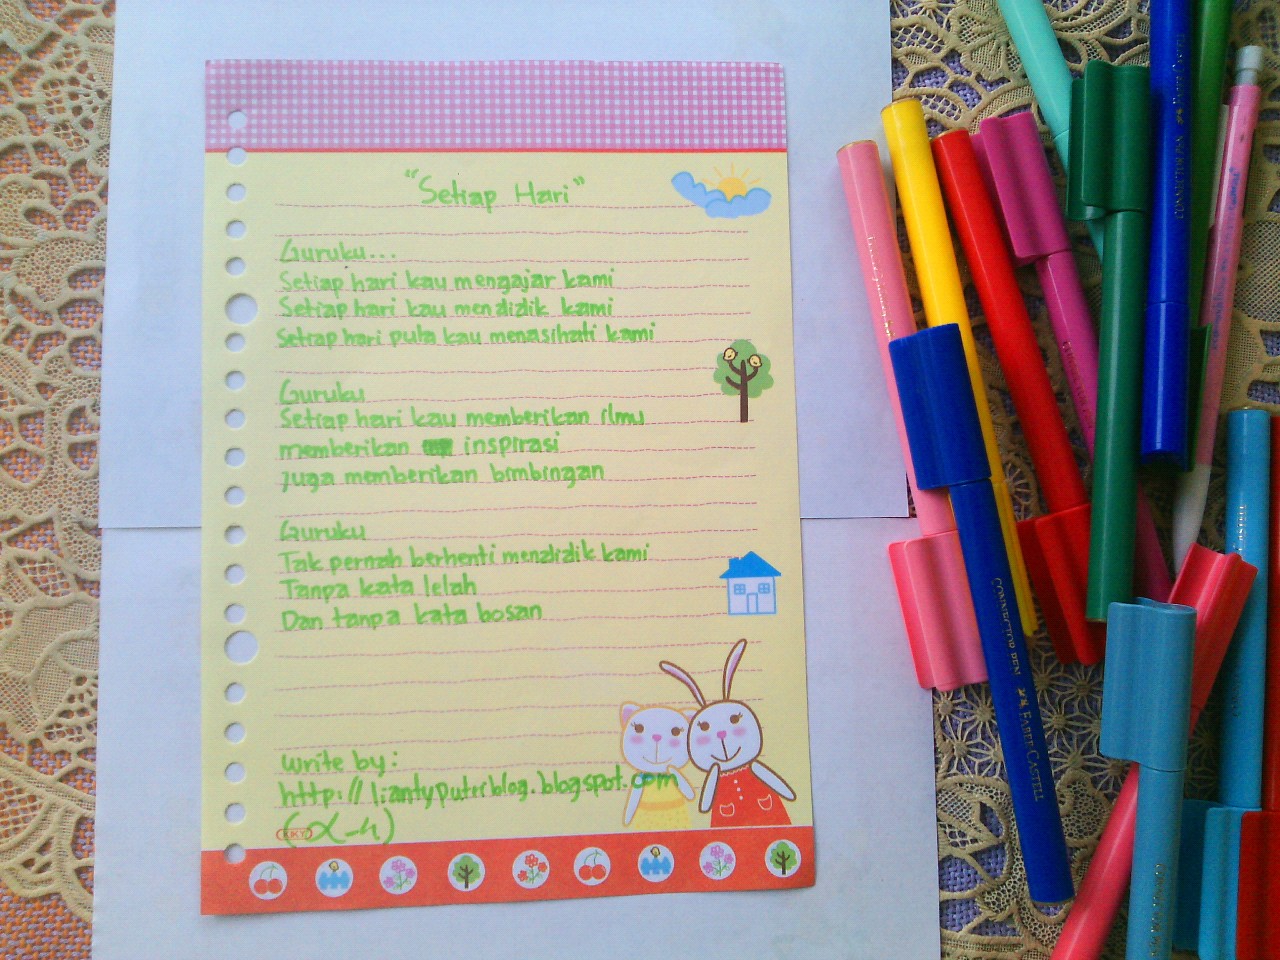 "Setiap Hari"
Guruku...
Setiap hari kau mengajar kami
Setiap hari kau mendidik kami
Setiap hari pula kau menasihati kami
Guruku
Setiap hari kau memberikan ilmu
memberikan inspirasi
juga memberikan bimbingan
Guruku
Tak pernah berhenti mendidik kami
Tanpa kata lelah
Dan tanpa kata bosan
write by:
http://liantyputriblog.blogspot.com
CONNECTOR PEN FABER-CASTELL
CONNECTOR PEN FABER-CASTELL